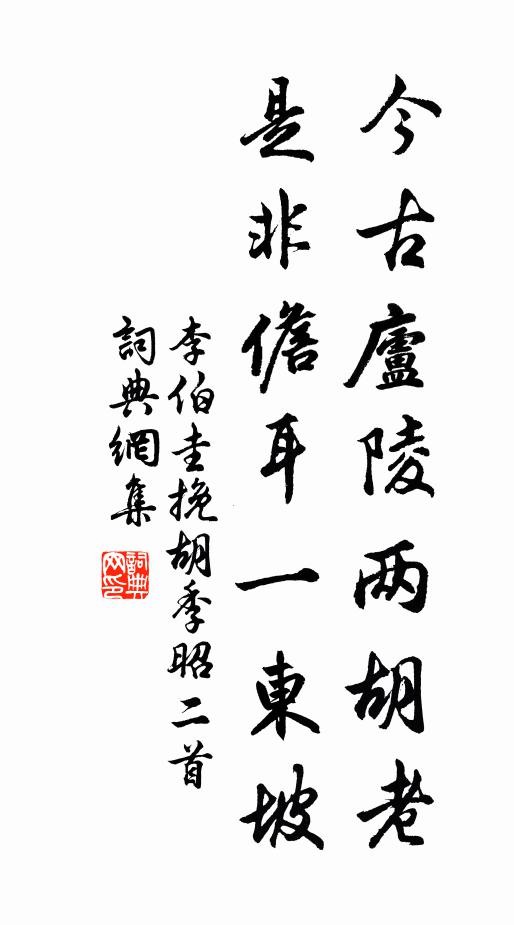 今古廬陵两胡老
是非儋耳一東坡
李伯圭挽胡季昭二首
詞典網集
詞典网印